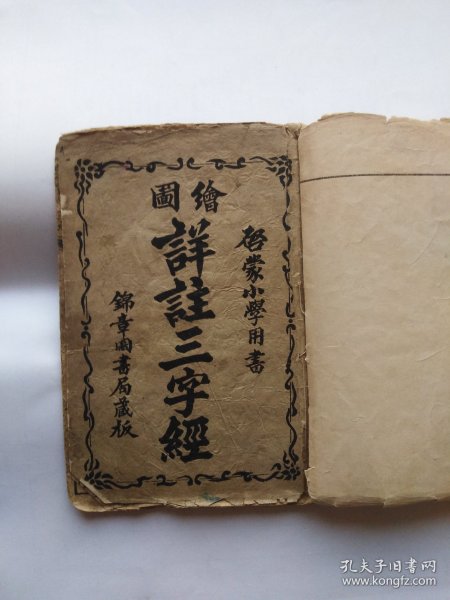 啓蒙小學用書
繪圖
詳註三字經
錦章圖書局藏板
孔夫子旧书网
www.kongfz.com